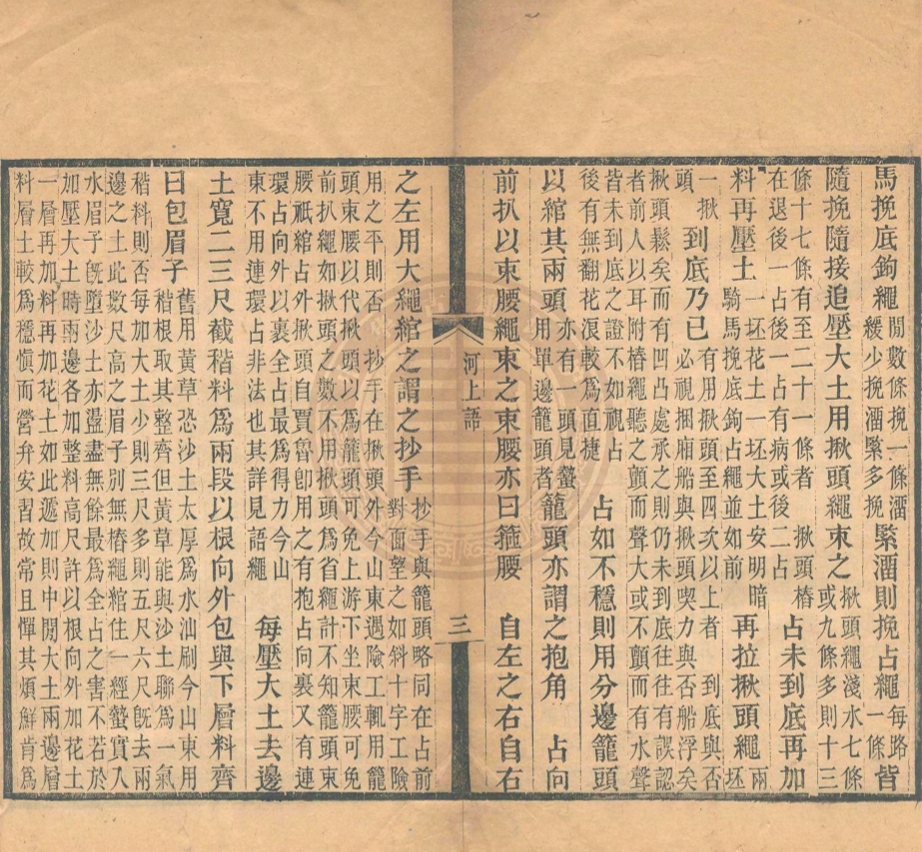 馬挽底鉤繩間數條挽一條溜緩少挽溜緊多挽緊溜則挽占繩每路一條皆
隨挽隨接追壓大土用揪頭繩束之揪頭繩淺水七條或九條多則十三
條十七條有至二十一條者 揪頭樁在退後一占有病或後二占 占未到底再加
料再壓土一坯花土一坯大土安明暗騎馬挽底鉤占繩並如前 再拉揪頭繩兩坯
一揪頭 到底乃已有用揪頭至四次以上者 到底與否必視捆廂船與揪頭喫力與否船浮矣
揪頭鬆矣而有凹凸處承之則仍未到底往往有誤認
者前人以耳附樁繩聽之顫而聲大或不顫而有水聲
皆未到底之證不如視占後有無翻花浪較爲直捷 占如不穩則用分邊籠頭
以綰其兩頭亦有一頭見蟄用單邊籠頭者籠頭亦謂之抱角 占向
前扒以束腰繩束之束腰亦曰箍腰 自左之右自右
河上語 三
之左用大繩綰之謂之抄手抄手與籠頭略同在占前對面望之如斜十字工險
用之平則否 抄手在揪頭外今山東遇險工輒用籠
頭束腰以代揪頭以爲籠頭可免上游下坐束腰可免
前扒繩如揪頭之數不用揪頭爲省繩計不知籠頭束
腰祇綰占外揪頭自賈魯卽用之有抱占向裹又有連
環占向外以裹全占最爲得力今山東不用連環占非法也其詳見語繩 每壓大土去邊
土寬二三尺截稭料爲兩段以根向外包與下層料齊
曰包眉子舊用黃草恐沙土太厚爲水汕刷今山東用稭根取其整齊但黃草能與沙土聯爲一氣
稭料則否每加大土少則三尺多則五尺六尺旣去兩
邊之土此數尺高之眉子別無樁繩綰住一經蟄實入
水眉子旣墮沙土亦盪盡無餘最爲全占之害不若於
加壓大土時兩邊各加整料高尺許以根向外加花土
一層再加料再加花土如此遞加則中間大土兩邊層
料層土較爲穩慎而營弁安習故常且憚其煩鮮肯爲